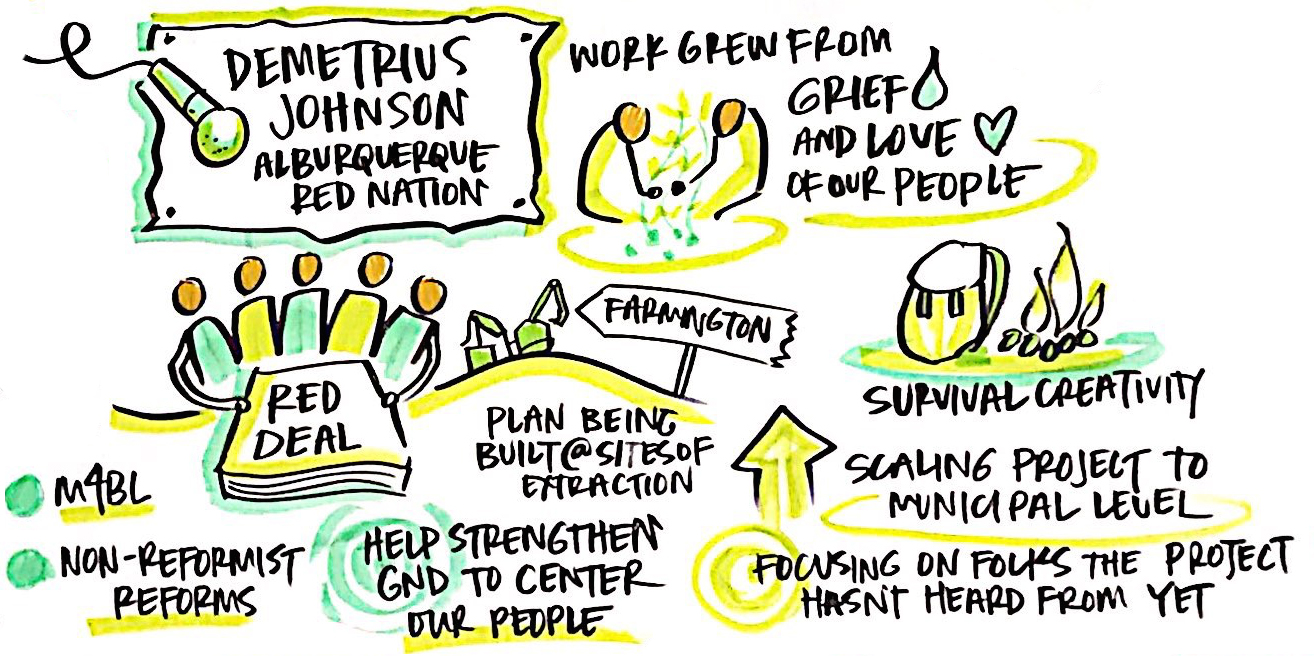 DEMETRIUS
JOHNSON
ALBURQUERQUE
RED NATION
WORK GREW FROM
GRIEF
AND LOVE
OF OUR PEOPLE
RED
DEAL
FARMINGTON
PLAN BEING
BUILT @ SITES OF
EXTRACTION
SURVIVAL CREATIVITY
M4BL
NON-REFORMIST
REFORMS
HELP STRENGTHEN
GND TO CENTER
OUR PEOPLE
SCALING PROJECT TO
MUNICIPAL LEVEL
FOCUSING ON FOLKS THE PROJECT
HASN'T HEARD FROM YET